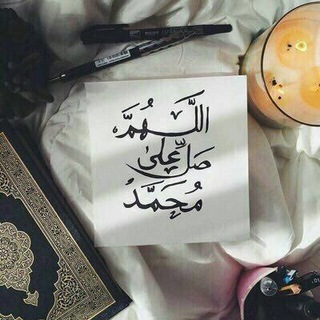 اللَّهُمَّ
صَلِّ عَلى
مُحَمَّدْ